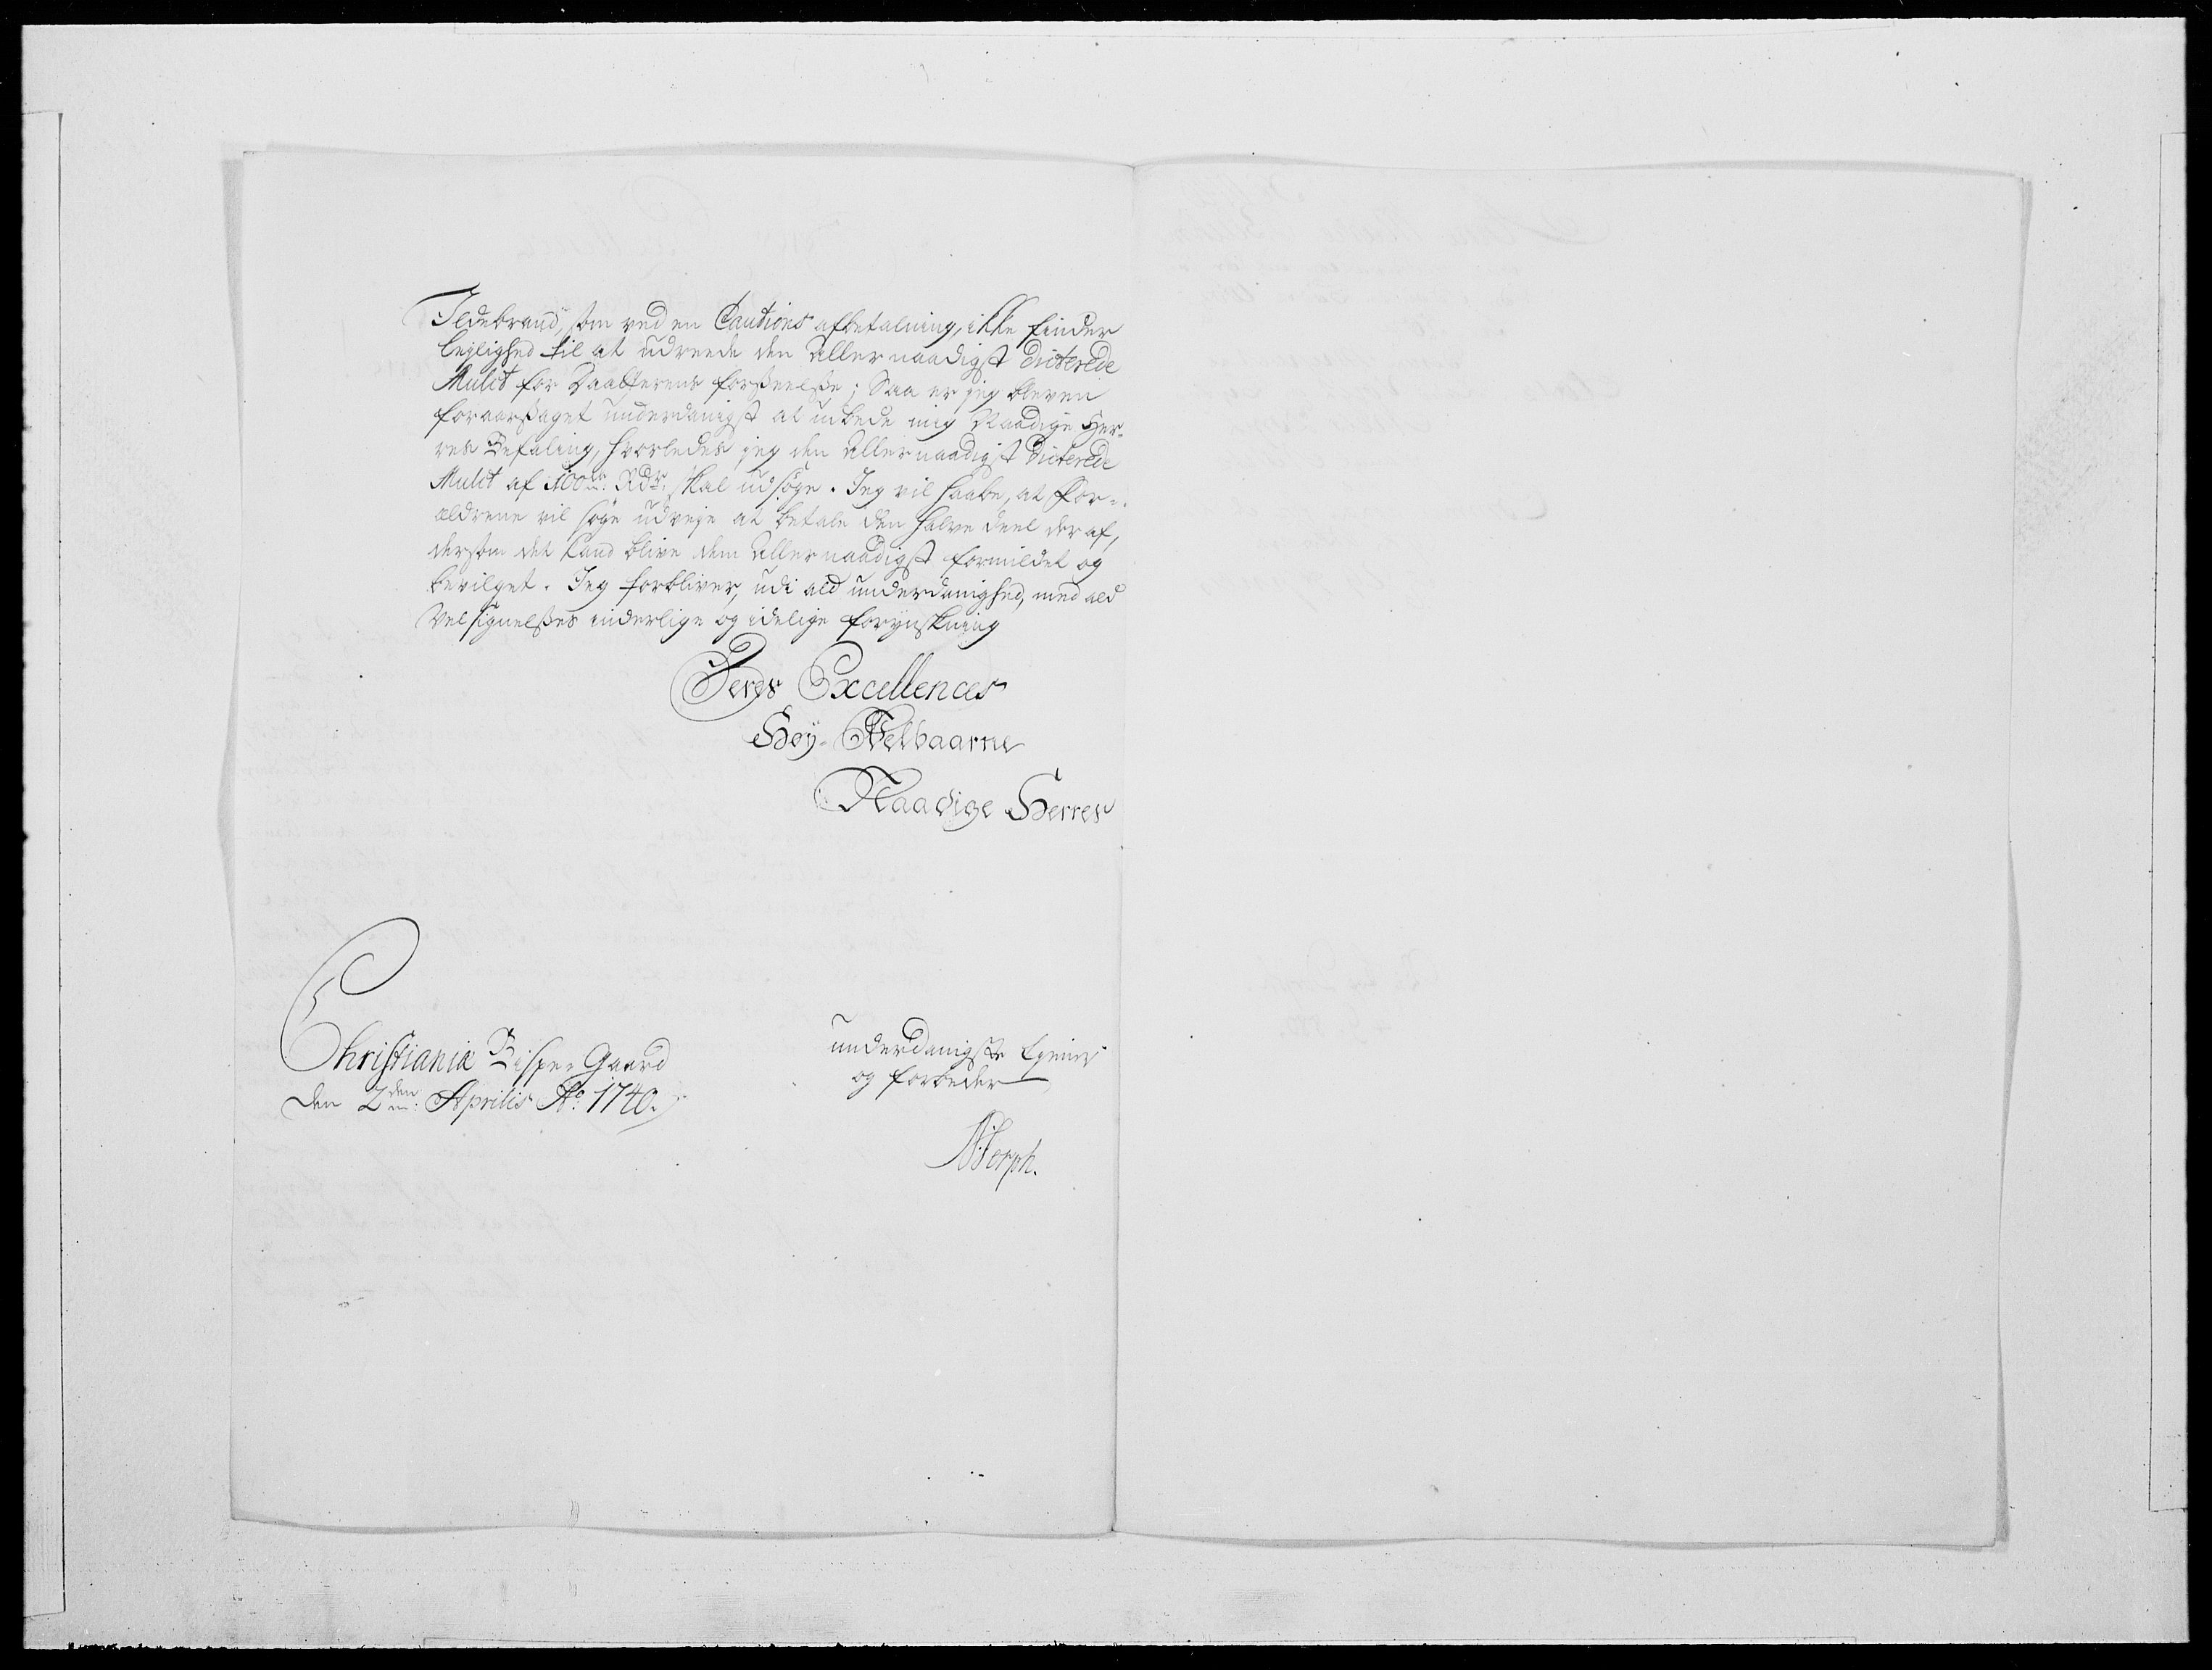 Ildebrand, som ved en Cautions afbetalning, ikke finder
lejlighed til at udreede den Allernaadigst dicterede
Mulct for Daatterens forseelsse; Saa er jeg bleven
foraarsaget underdanigst at udbede mig Naadige Her-
res Befaling, hvorledes jeg den Allernaadigst dicterede
Mulct af 100de Rdr. skal udsøge. Jeg vil haabe, at For-
ældrene vil søge udveje at betale den halve deel der af,
dersom det kand blive dem Allernaadigst formildet og
bevilget. Jeg forbliver, udi ald underdanighed, med ald
Velsignelses inderlige og idelige forynskning
Deres Excellences
Høy-Welbaarne
Naadige Herres
Christiania Bispe-Gaard
den 2den Aprilis Ao. 1740.
underdanigste tjener
og forbeder
NDorph.